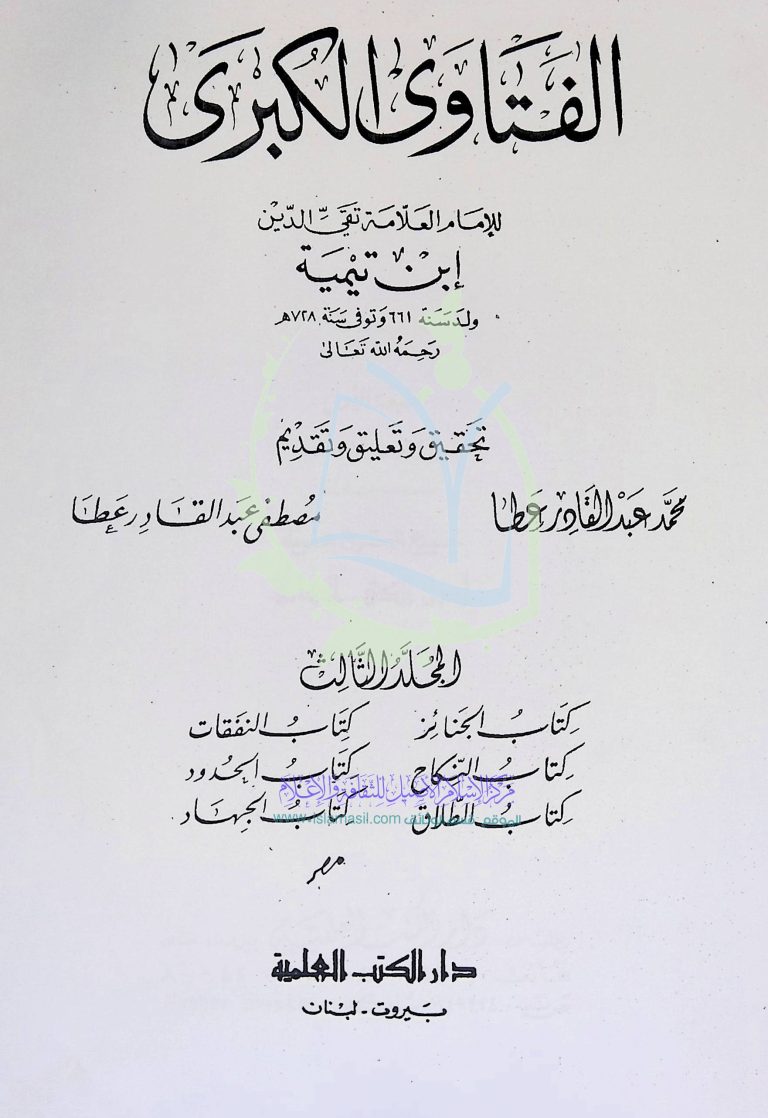 الفتاوى الكبرى
للإمام العلامة تقي الدين
إبن تيمية
ولد سنة ٦٦١ وتوفى سنة ٧٢٨هـ
رحمه الله تعالى
تحقيق وتعليق وتقديم
محمد عبد القادر عطا مصطفى عبد القادر عطا
المجلد الثالث
كتاب الجنائز كتاب النفقات
كتاب النكاح كتاب الحدود
مركز الإسلام الأصيل للثقافة والإعلام
كتاب الطلاق كتاب الجهاد
الموقع: قسم الوثائق www.islamasil.com
دار الكتب العلمية
بيروت - لبنان